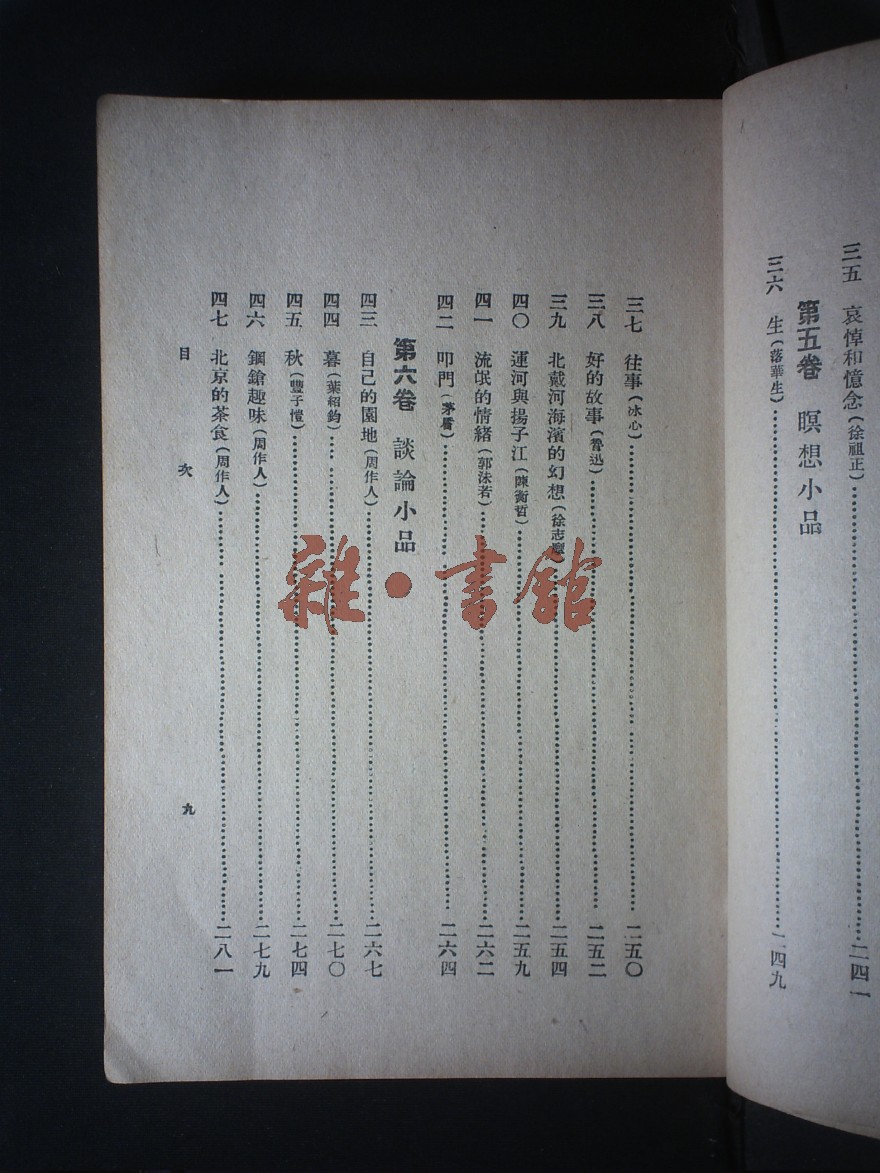 三五　哀悼和憶念（徐祖正）……二四一
第五卷　暝想小品
三六　生（落華生）……二四九
三七　往事（冰心）……二五〇
三八　好的故事（魯迅）……二五二
三九　北戴河海濱的幻想（徐志摩）……二五四
四〇　運河與揚子江（陳衡哲）……二五九
四一　流氓的情緒（郭沫若）……二六二
四二　叩門（茅盾）……二六四
第六卷　談論小品
四三　自己的園地（周作人）……二六七
四四　暮（葉紹鈞）……二七〇
四五　秋（豐子愷）……二七四
四六　鋼鎗趣味（周作人）……二七九
四七　北京的茶食（周作人）……二八一
目次　九
雜·書館